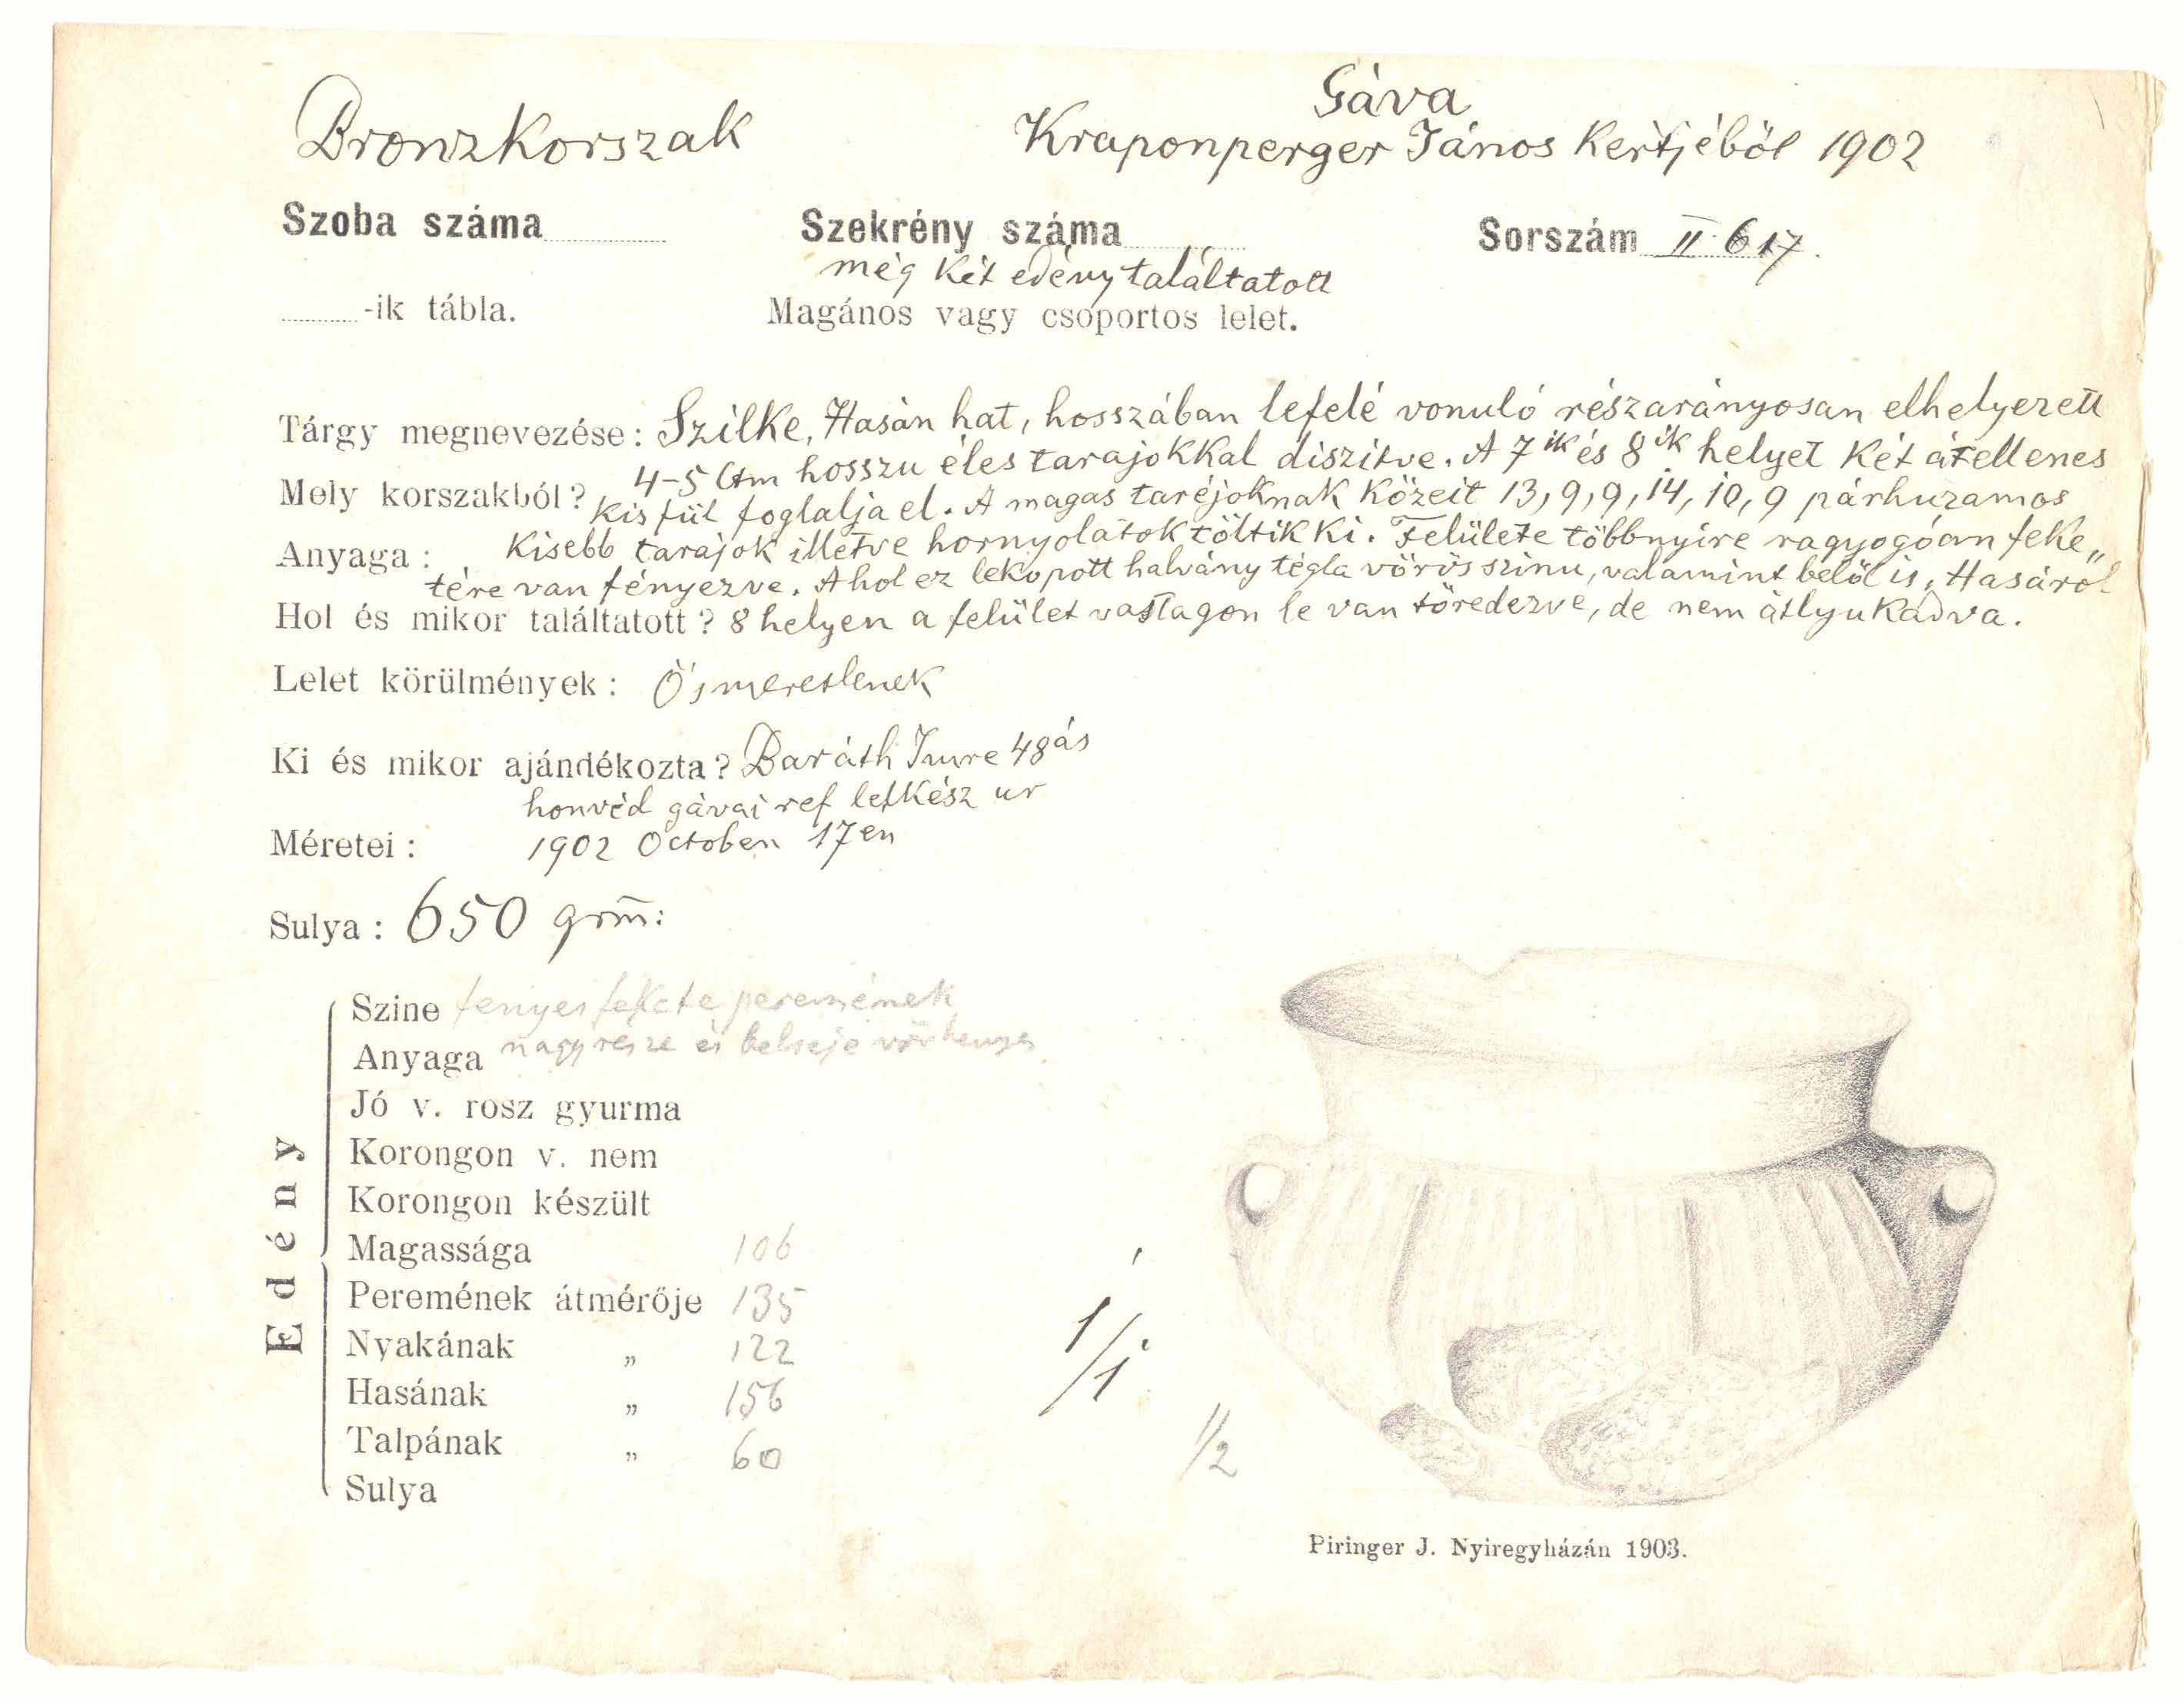 Gáva
Bronzkorszak Kraponperger János kertjéből 1902
Szoba száma Szekrény száma Sorszám II. 617.
még két edény találtatott
-ik tábla. Magános vagy csoportos lelet.
Tárgy megnevezése: Szilke, Hasán hat, hosszában lefelé vonuló részarányosan elhelyezett
4-5 Ctm hosszu éles tarajokkal diszitve. A 7ik és 8ik helyet két átellenes
Mely korszakból? kis fül foglalja el. A magas taréjoknak közeit 13, 9, 9, 14, 10, 9 párhuzamos
Anyaga: kisebb tarajok illetve hornyolatok töltik ki. Felülete többnyire ragyogóan feke„
tére van fényezve. Ahol ez lekopott halvány tégla vörös szinu, valamint belöl is, Hasáról
Hol és mikor találtatott? 8 helyen a felület vastagon le van töredezve, de nem átlyukadva.
Lelet körülmények: Ösmeretlenek
Ki és mikor ajándékozta? Baráth Imre 48ás
honvéd gávai ref lelkész ur
Méretei: 1902 October 17en
Sulya: 650 grm:
Edény
Szine fenyes fekete peremének
Anyaga nagy resze es belseje vörhenyes
Jó v. rosz gyurma
Korongon v. nem
Korongon készült
Magassága 106
Peremének átmérője 135
Nyakának „ 122
Hasának „ 156
Talpának „ 60
Sulya
1/1
1/2
Piringer J. Nyiregyházán 1903.